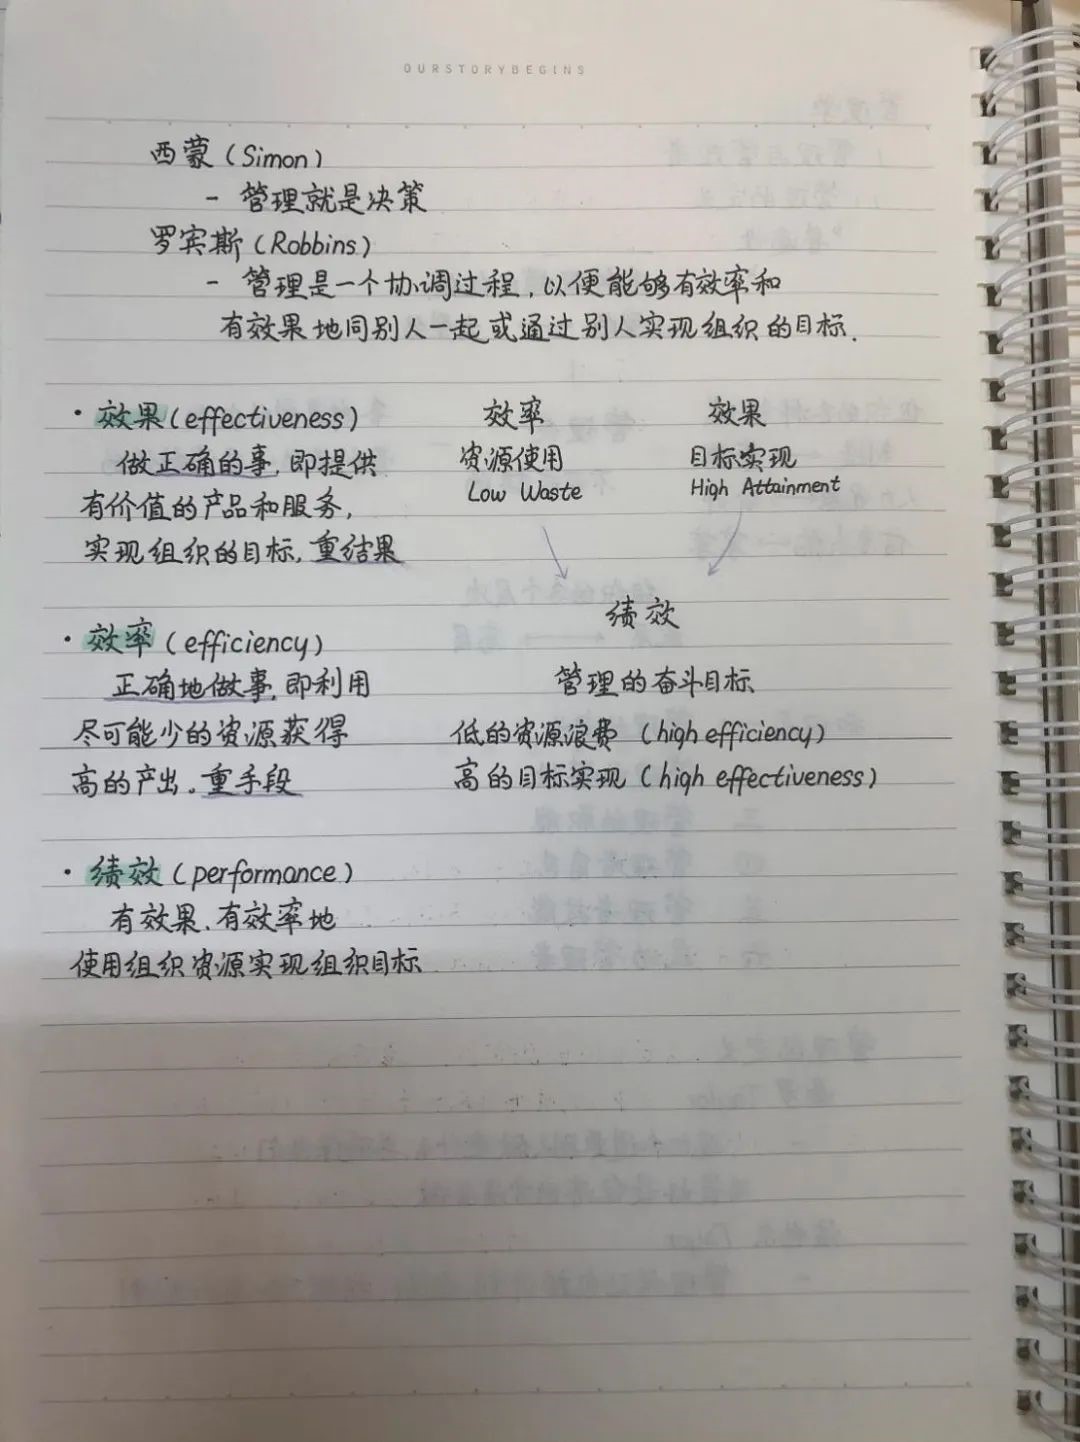 OURSTORYBEGINS
西蒙（Simon）
- 管理就是决策
罗宾斯（Robbins）
- 管理是一个协调过程，以便能够有效率和
有效果地同别人一起或通过别人实现组织的目标.
· 效果（effectiveness）
做正确的事，即提供
有价值的产品和服务，
实现组织的目标，重结果
效率 效果
资源使用 目标实现
Low Waste High Attainment
绩效
· 效率（efficiency）
正确地做事，即利用
尽可能少的资源获得
高的产出。重手段
管理的奋斗目标
低的资源浪费（high efficiency）
高的目标实现（high effectiveness）
· 绩效（performance）
有效果、有效率地
使用组织资源实现组织目标